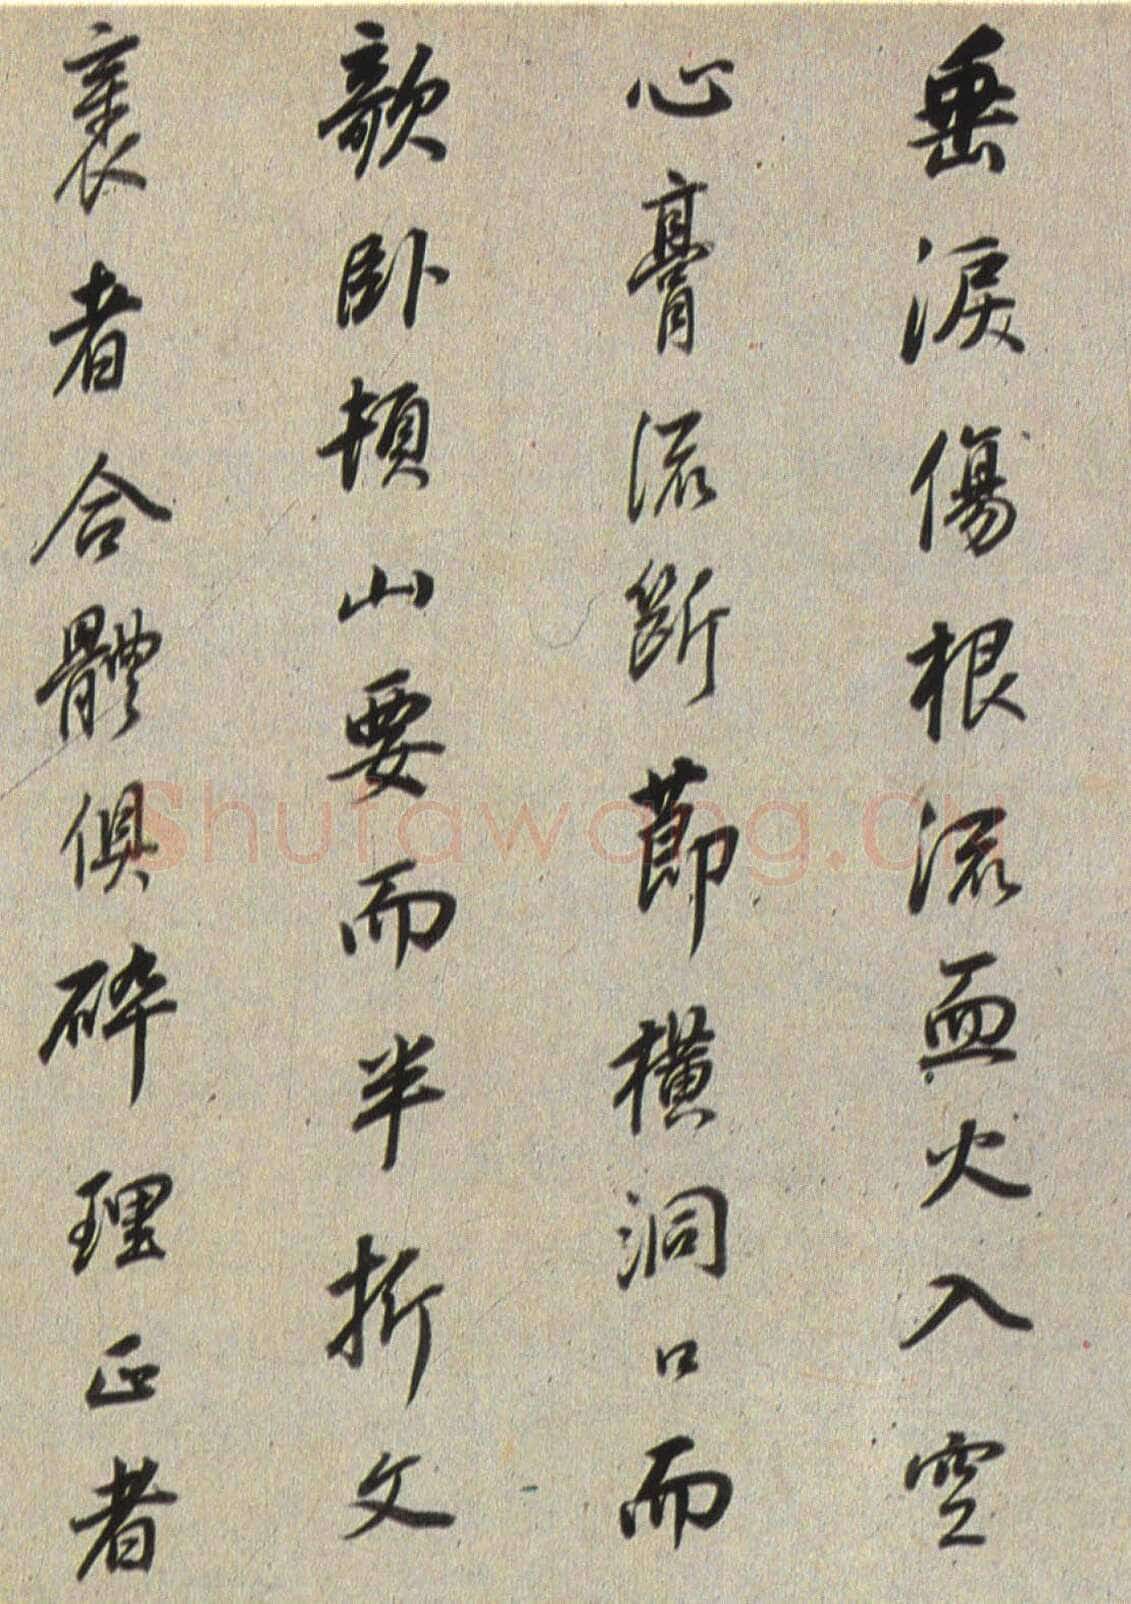 垂淚傷根流血火入空
心膏流斷節橫洞口而
欹卧頓山要而半折文
裹者合體俱碎理正者
Shufawang.cn